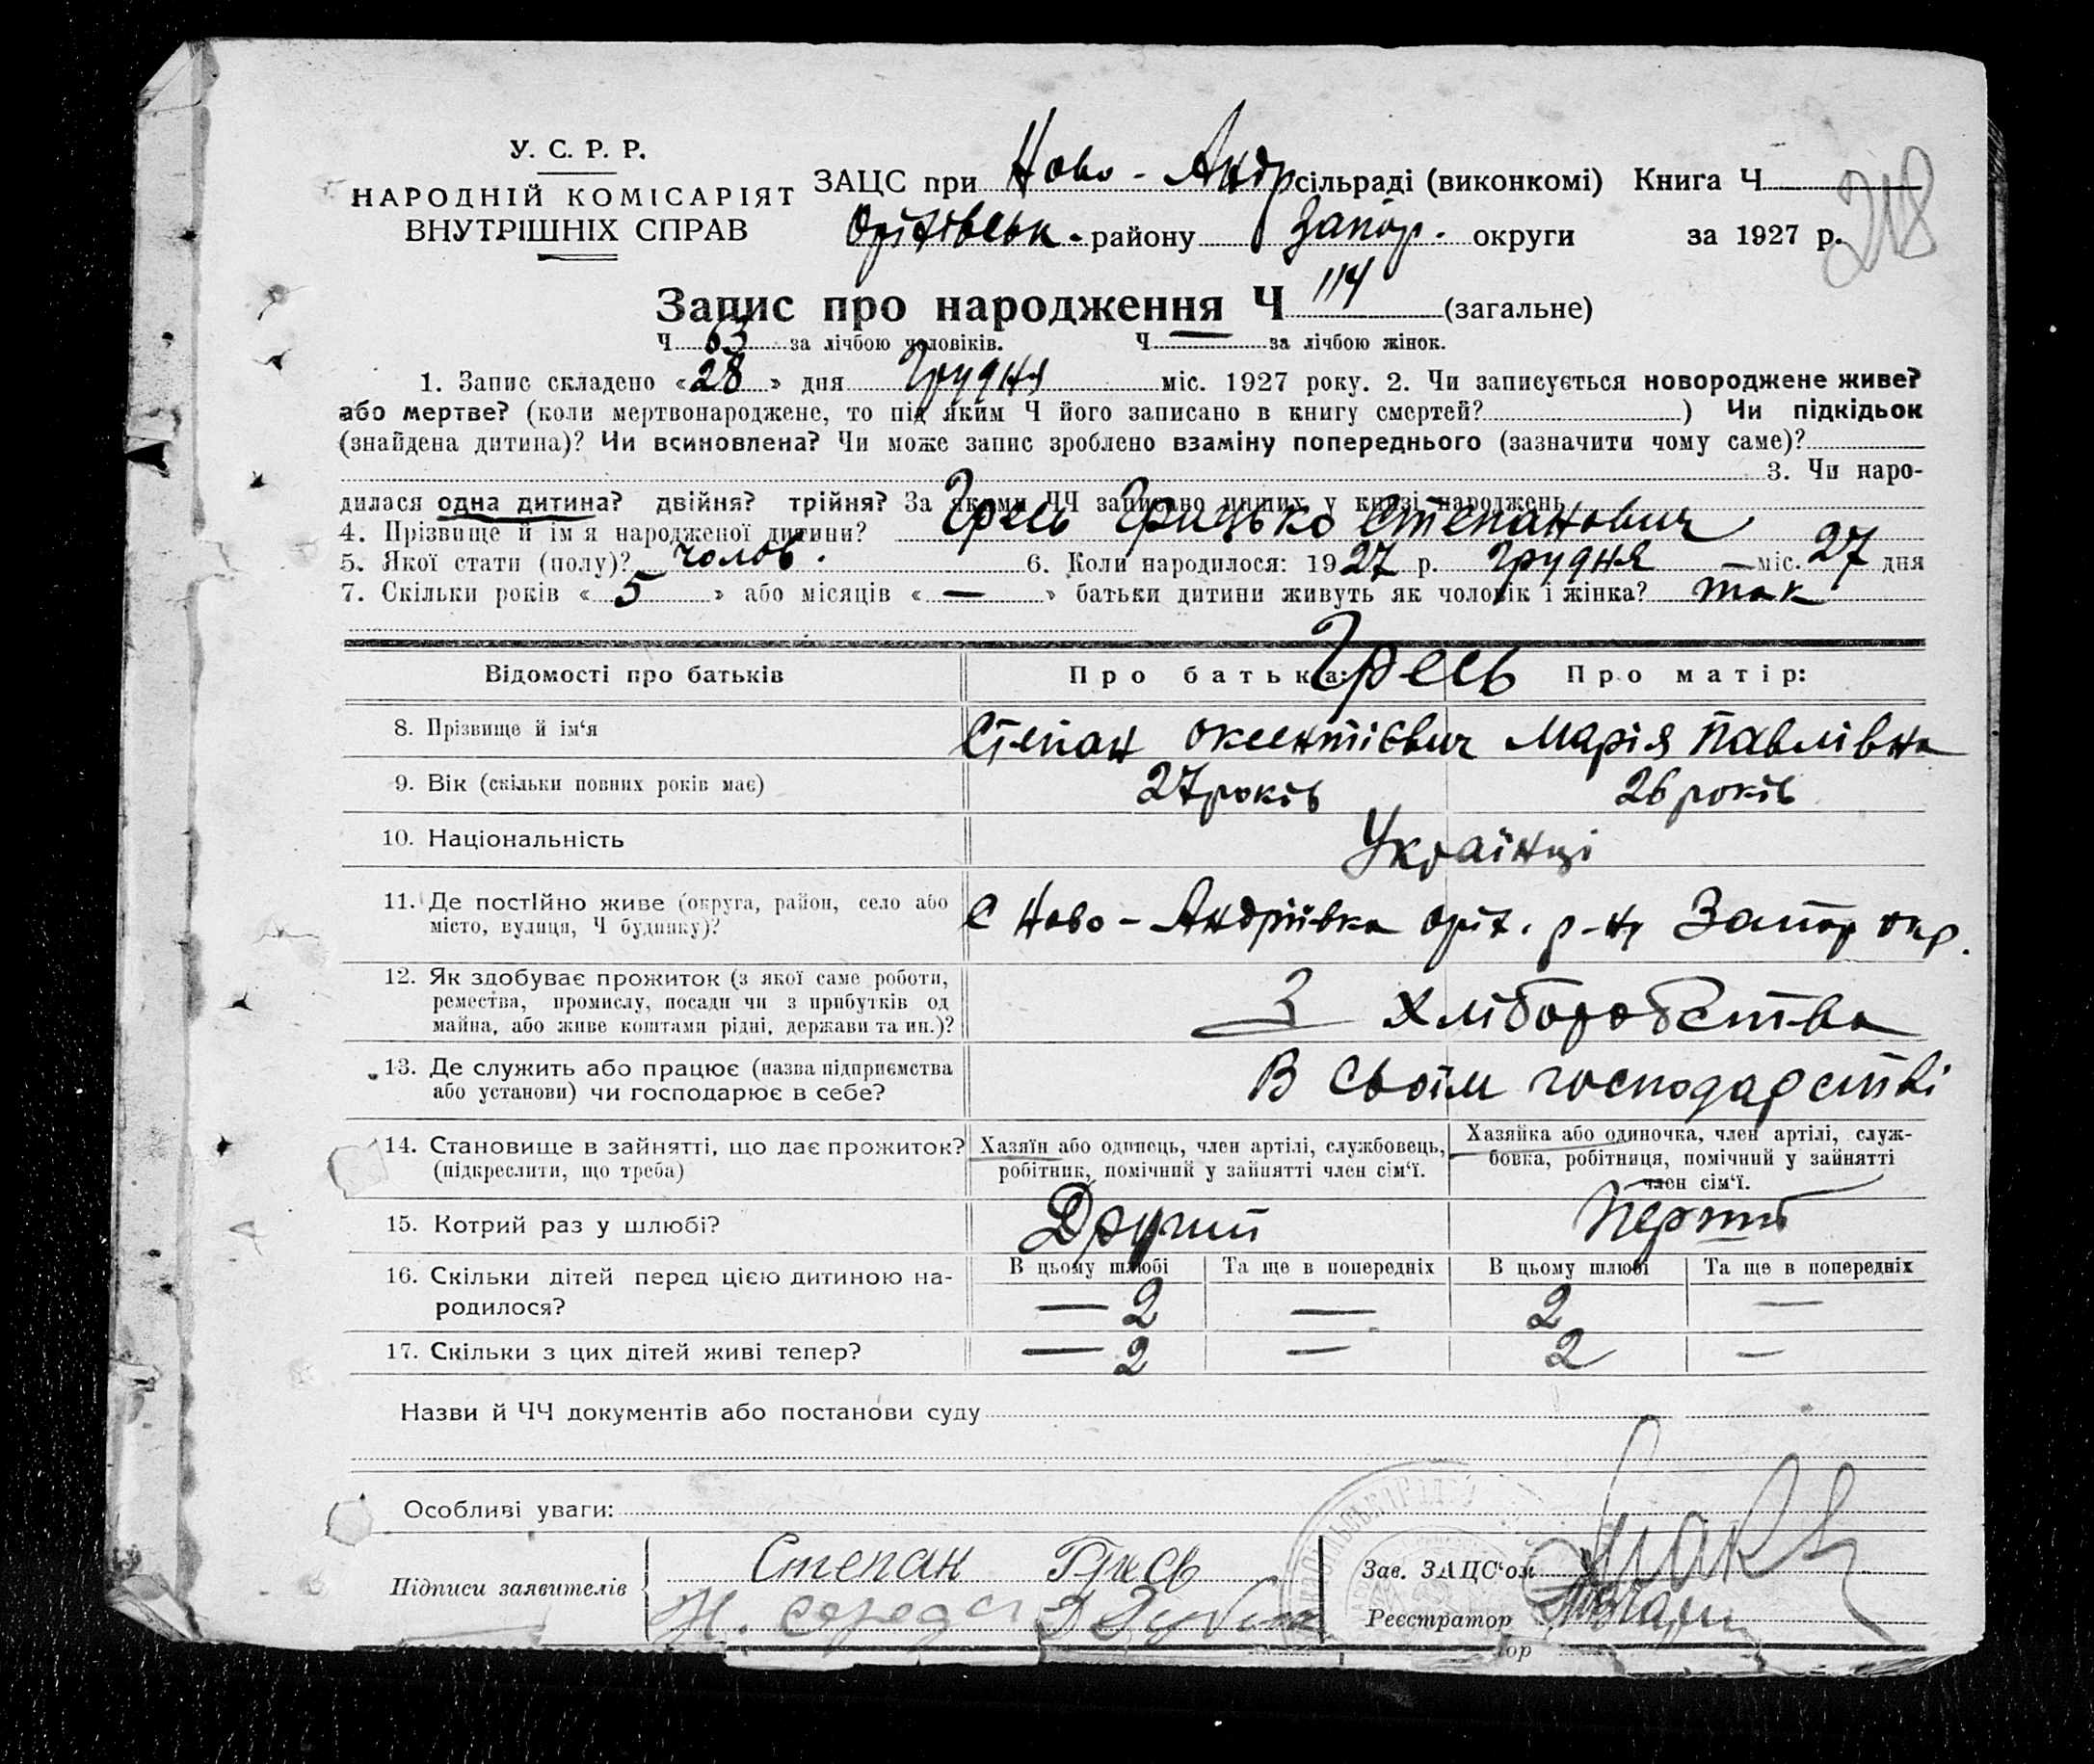 У. С. Р. Р.
НАРОДНІЙ КОМІСАРІЯТ
ВНУТРІШНІХ СПРАВ
ЗАЦС при Ново - Андр сільраді (виконкомі) Книга Ч
218
Оріхівськ. району Запор. округи за 1927 р.
Запис про народження Ч 114 (загальне)
Ч 63 за лічбою чоловіків. Ч — за лічбою жінок.
1. Запис складено «28» дня Грудня міс. 1927 року. 2. Чи записується новороджене живе?
або мертве? (коли мертвонароджене, то під яким Ч його записано в книгу смертей? ) Чи підкідьок
(знайдена дитина)? Чи всиновлена? Чи може запис зроблено взаміну попереднього (зазначити чому саме)?
3. Чи наро-
дилася одна дитина? двійня? трійня? За якими ЧЧ записано инших у книзі народжень
4. Прізвище й ім'я народженої дитини? Гресь Грицько Степанович
5. Якої стати (полу)? чолов. 6. Коли народилося: 1927 р. грудня міс. 27 дня
7. Скільки років «5» або місяців «—» батьки дитини живуть як чоловік і жінка? так
Відомості про батьків Про батька: Гресь Про матір:
8. Прізвище й ім'я Степан Оксентієвич Марія Павлівна
9. Вік (скільки повних років має) 27 років 26 років
10. Національність Українці
11. Де постійно живе (округа, район, село або
місто, вулиця, Ч будинку)?
С Ново-Андріївка Оріх. р-н Запор окр.
12. Як здобуває прожиток (з якої саме роботи,
ремества, промислу, посади чи з прибутків од
майна, або живе коштами рідні, держави та ин.)?
З хліборобства
13. Де служить або працює (назва підприємства
або установи) чи господарює в себе?
В своїм господарстві
14. Становище в зайнятті, що дає прожиток?
(підкреслити, що треба)
Хазяїн або одинець, член артілі, службовець,
робітник, помічний у зайнятті член сім'ї.
Хазяйка або одиночка, член артілі, служ-
бовка, робітниця, помічний у зайнятті
член сім'ї.
15. Котрий раз у шлюбі? Другий Перший
16. Скільки дітей перед цією дитиною на-
родилося?
В цьому шлюбі Та ще в попередніх В цьому шлюбі Та ще в попередніх
— 2 — 2 —
17. Скільки з цих дітей живі тепер? — 2 — 2 —
Назви й ЧЧ документів або постанови суду
Особливі уваги:
Підписи заявителів
Степан Гресь
Зав. ЗАЦС'ом
Реєстратор